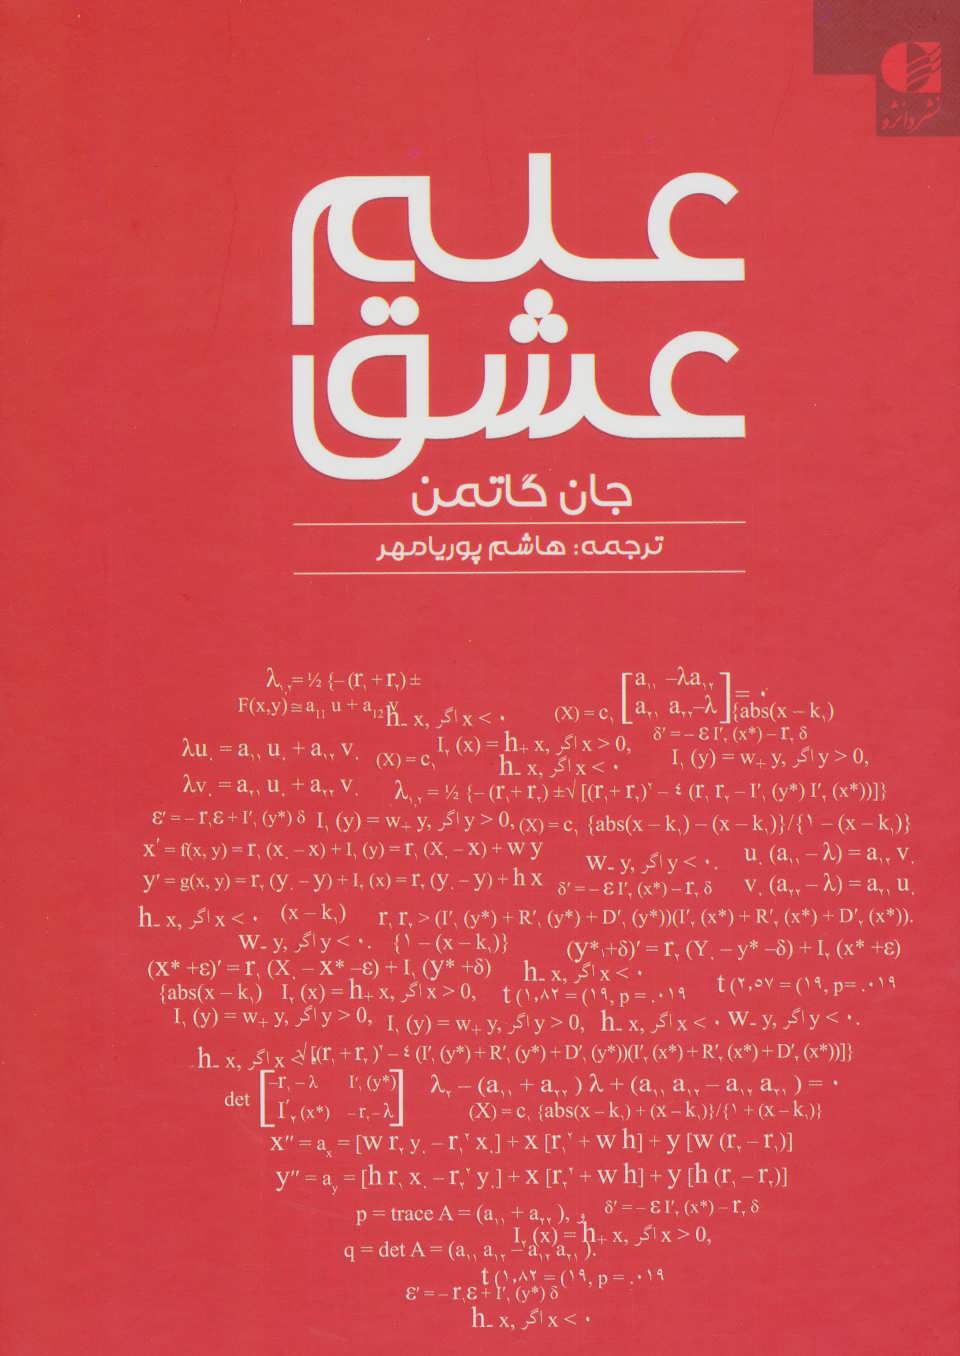 نشر دانژه
علم
عشق
جان گاتمن
ترجمه: هاشم پوریامهر
λ₁,₂ = ½ {– (r₁ + r₂) ±
F(x,y) ≅ a₁₁ u + a₁₂ v
h₋ x, اگر x < ۰
(X) = c₁
[a₁₁ –λa₁₂
a₂₁ a₂₂–λ] = ۰
{abs(x – k₁)
δ′ = – ε I′₁ (x*) – r₁ δ
λu. = a₁₁ u. + a₁₂ v.
(X) = c₁
I₁ (x) = h₊ x, اگر x > 0,
h₋ x, اگر x < ۰
I₁ (y) = w₊ y, اگر y > 0,
λv. = a₂₁ u. + a₂₂ v.
λ₁,₂ = ½ {– (r₁+ r₂) ±√ [(r₁+ r₂)² – ٤ (r₁ r₂ – I′₁ (y*) I′₂ (x*))]}
ε′ = – r₁ε + I′₁ (y*) δ
I₁ (y) = w₊ y, اگر y > 0,
(X) = c₁ {abs(x – k₁) – (x – k₁)}/{۱ – (x – k₁)}
x′ = f(x, y) = r₁ (x. – x) + I₁ (y) = r₁ (X. – x) + w y
w₋ y, اگر y < ۰.
u. (a₁₁ – λ) = a₁₂ v.
y′ = g(x, y) = r₂ (y. – y) + I₂ (x) = r₂ (y. – y) + h x
δ′ = – ε I′₂ (x*) – r₂ δ
v. (a₂₂ – λ) = a₂₁ u.
h₋ x, اگر x < ۰
(x – k₁)
r₁ r₂ > (I′₁ (y*) + R′₁ (y*) + D′₁ (y*))(I′₂ (x*) + R′₂ (x*) + D′₂ (x*)).
w₋ y, اگر y < ۰.
{۱ – (x – k₁)}
(y*₁+δ)′ = r₂ (Y. – y* –δ) + I₂ (x* +ε)
(x* +ε)′ = r₁ (X. – x* –ε) + I₁ (y* +δ)
h₋ x, اگر x < ۰
{abs(x – k₁)
I₂ (x) = h₊ x, اگر x > 0,
t (۱,۸۲ = (۱۹, p = .۰۱۹
t (۲,۵۷ = (۱۹, p= .۰۱۹
I₁ (y) = w₊ y, اگر y > 0,
I₁ (y) = w₊ y, اگر y > 0,
h₋ x, اگر x < ۰
w₋ y, اگر y < ۰.
h₋ x, اگر x <
√ [(r₁ + r₂ )² – ٤ (I′₁ (y*) + R′₁ (y*) + D′₁ (y*))(I′₂ (x*) + R′₂ (x*) + D′₂ (x*))]}
det [–r₁ – λ I′₁ (y*)
I′₂ (x*) – r₂ – λ]
λ₂ – (a₁₁ + a₂₂ ) λ + (a₁₁ a₂₂ – a₁₂ a₂₁ ) = ۰
(X) = c₁ {abs(x – k₁) + (x – k₁)}/{۱ + (x – k₁)}
x″ = aₓ = [w r₂ y. – r₁² x.] + x [r₁² + w h] + y [w (r₂ – r₁)]
y″ = a_y = [h r₁ x. – r₂² y.] + x [r₂² + w h] + y [h (r₁ – r₂)]
p = trace A = (a₁₁ + a₂₂ ), و
δ′ = – ε I′₂ (x*) – r₂ δ
I₂ (x) = h₊ x, اگر x > 0,
q = det A = (a₁₁ a₂₂ – a₁₂ a₂₁ ).
t (۱,۸۲ = (۱۹, p = .۰۱۹
ε′ = – r₁ε + I′₁ (y*) δ
h₋ x, اگر x < ۰